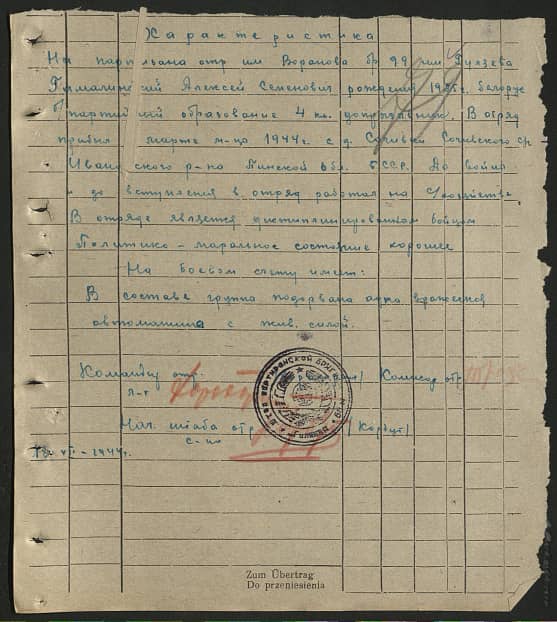 Характеристика
На партизана отр им Воранова бр 99 им Гуляева
Алексей Семенович рождения белорус
б/партийный образование 4 кл. В отряд
прибыл марте м-цо 1944 г. с д. Сочивки Сочивского с/с
Ивановского р-на Пинской обл. БССР. До войны
и до вступления в отряд работал на С/хозяйстве
В отряде является дистиплинированом бойцом
Политико-маральное состояние хорошее
На боевом счету имеет:
В составе группы подорвана одна вражеская
автомашина с жив. силой.
Командир отр. Комисар отр.
л-т
Нач. штаба отр /Корбут/
с-на
VI-1944 г.
Zum Übertrag
Do przeniesienia